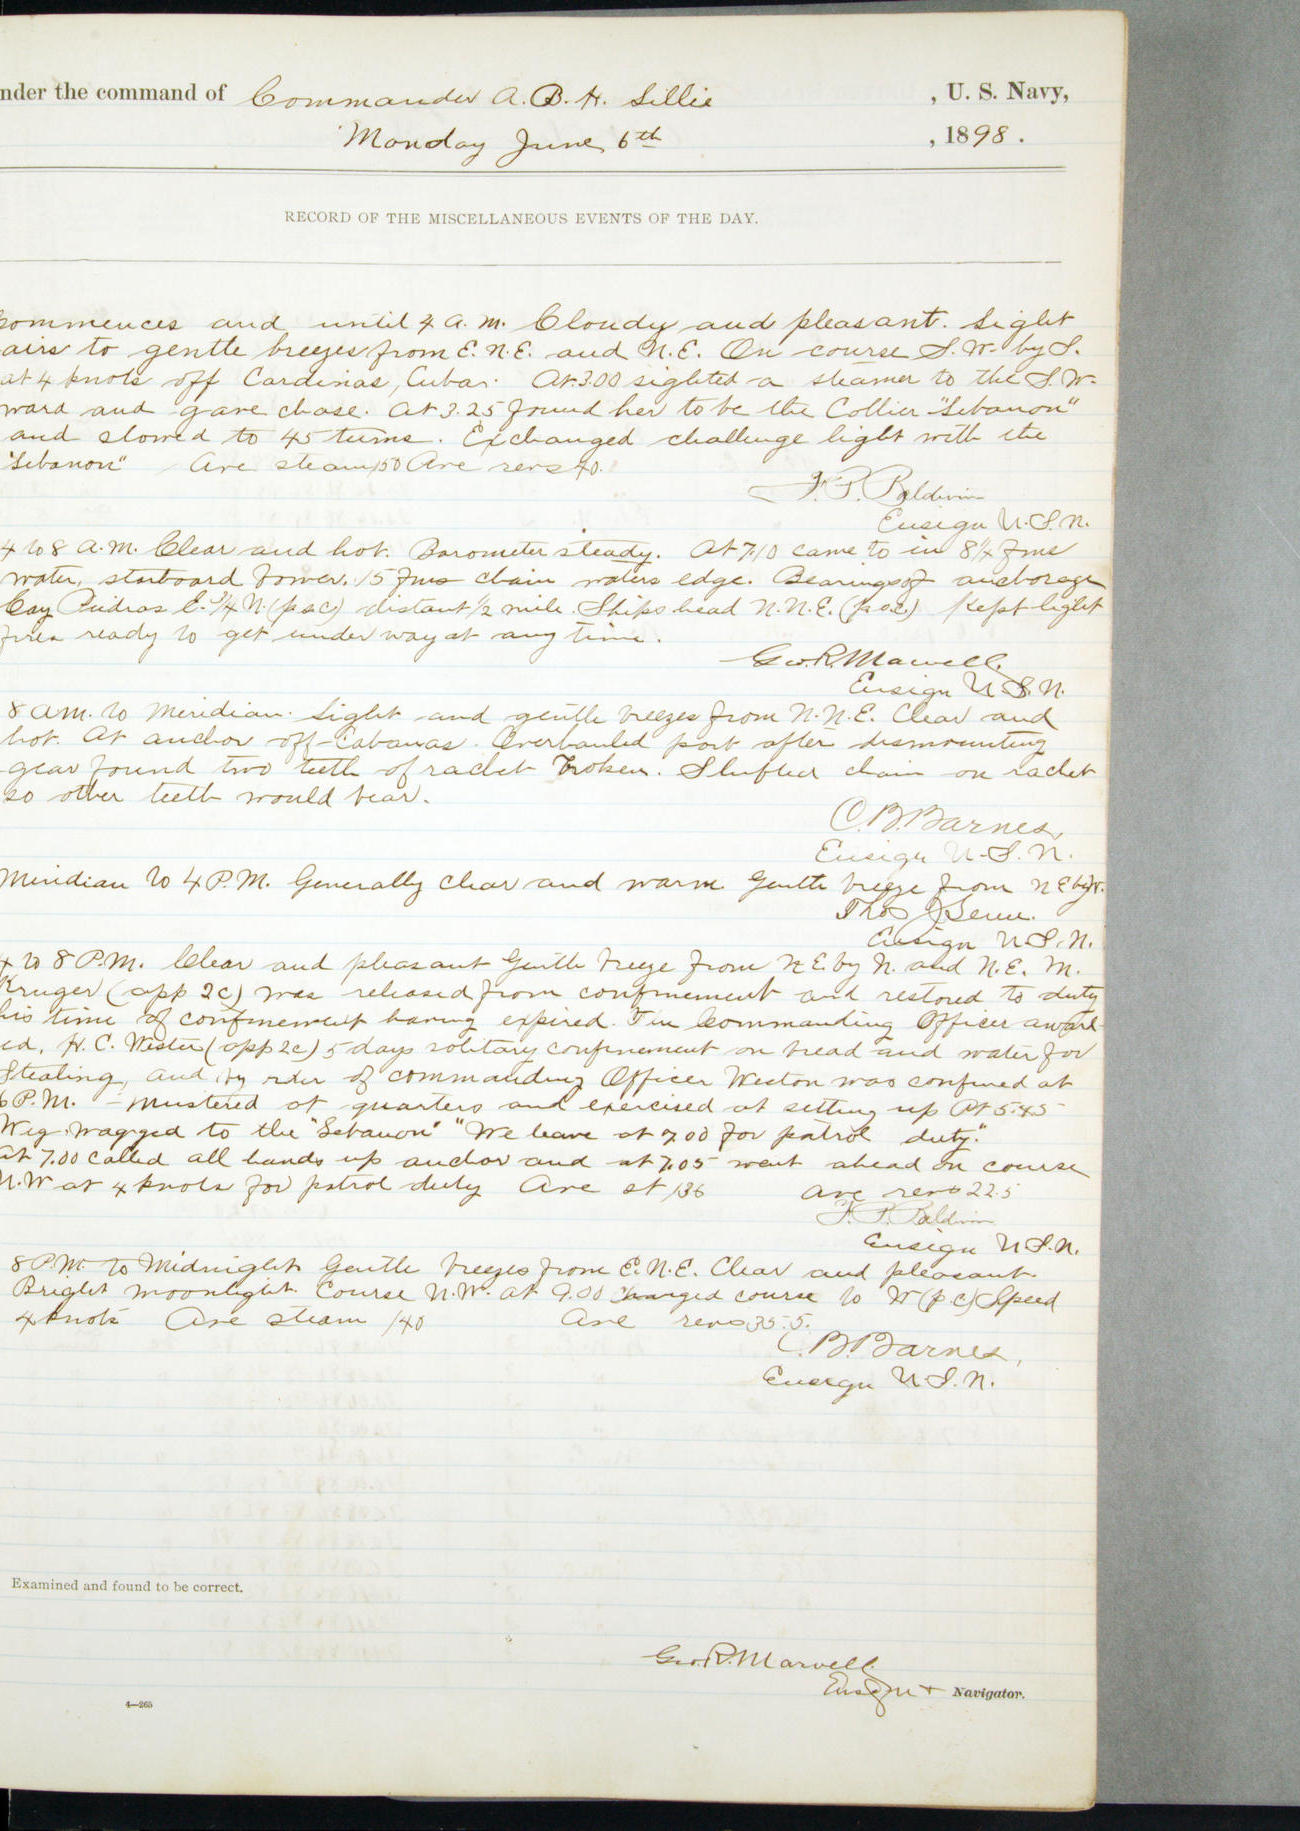 nder the command of Commander A. B. H. Lillie , U. S. Navy,
Monday June 6th , 1898.
RECORD OF THE MISCELLANEOUS EVENTS OF THE DAY.
Commences and until 4 a. m. Cloudy and pleasant. Light
airs to gentle breezes from E. N. E. and N. E. On course S. W. by S.
at 4 knots off Cardinas, Cuba. At 3.00 sighted a steamer to the S. W.
ward and gave chase. At 3.25 found her to be the Collier "Lebanon"
and slowed to 45 turns. Exchanged challenge light with the
"Lebanon" Ave steam 150 Ave revs 40.
F. P. Baldwin
Ensign U. S. N.
4 to 8 A. M. Clear and hot. Barometer steady. At 7.10 came to in 8¼ fms
water, starboard bower. 15 fms chain waters edge. Bearings of anchorage
Cay Piedras E. ¾ N. (p s c) distant ½ mile. Ships head N. N. E. (p s c) Kept light
fires ready to get under way at any time.
Geo. R. Marvell.
Ensign U. S. N.
8 a m. to Meridian. Light and gentle breezes from N. N. E. Clear and
hot. At anchor off Cabanas. Overhauled port after dismounting
gear found two teeth of rachet broken. Shifted chain on rachet
so other teeth would bear.
C. B. Barnes,
Ensign U. S. N.
Meridian to 4 P. M. Generally clear and warm Gentle breeze from N E by N.
Thos J Senn.
Ensign U. S. N.
4 to 8 P. M. Clear and pleasant Gentle breeze from N E. by N. and N. E. M.
Kruger (app 2c) was released from confinement and restored to duty
his time of confinement having expired. The Commanding Officer award-
ed, H. C. Weston (app 2c) 5 days solitary confinement on bread and water for
Stealing, and by order of commanding Officer Weston was confined at
6 P. M. – Mustered at quarters and exercised at setting up At 5.45
Wig-wagged to the "Lebanon" "We leave at 7.00 for patrol duty."
At 7.00 called all hands up anchor and at 7.05 went ahead on course
N. W at 4 knots for patrol duty Ave st 136 Ave revs 22.5
F. P. Baldwin
Ensign U. S. N.
8 P. M. to Midnight Gentle breezes from E. N. E. Clear and pleasant.
Bright moonlight. Course N. W. At 9.00 Changed course to W (p. c.) Speed
4 knots Ave steam 140 Ave revs 35.5.
C. B. Barnes,
Ensign U. S. N.
Examined and found to be correct.
Geo. R. Marvell.
Ensign + Navigator.
4—265